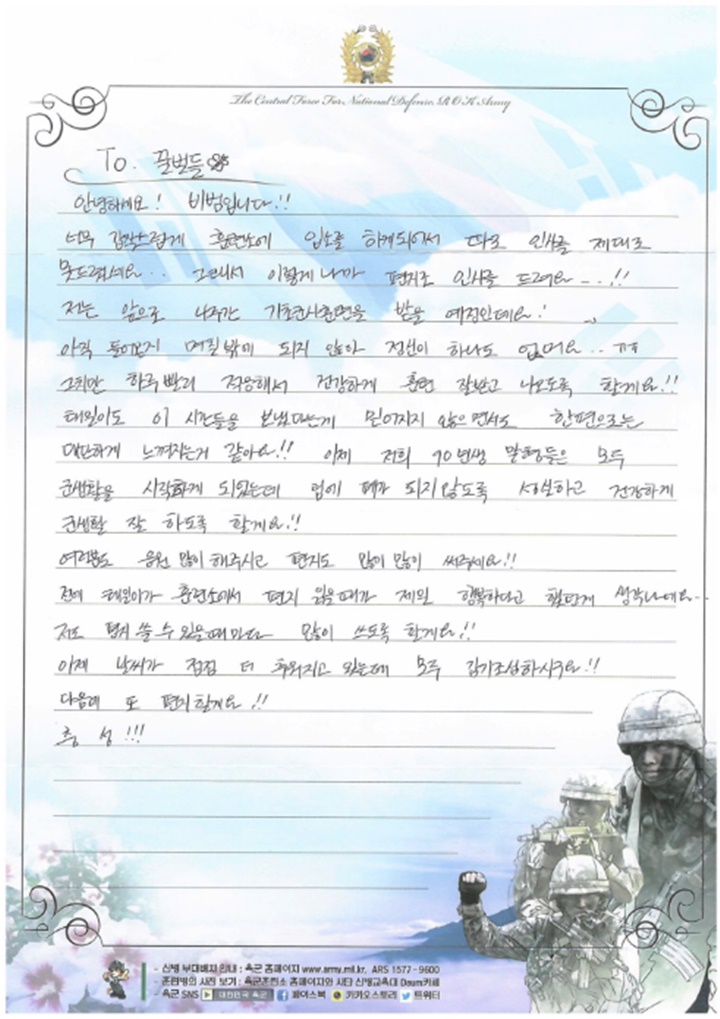 The Central Force For National Defense, R O K Army
To. 꿀벌들
안녕하세요! 비범입니다!!
너무 갑작스럽게 훈련소에 입소를 하게되어서 따로 인사를 제대로
못드렸네요.. 그래서 이렇게나마 편지로 인사를 드려요...!!
저는 앞으로 나흘간 기초군사훈련을 받을 예정인데요!
아직 들어온지 며칠밖에 되지 않아 정신이 하나도 없어요.. ㅠㅠ
그치만 하루빨리 적응해서 건강하게 훈련 잘받고 나오도록 할게요!!
태일이도 이 시간들을 보냈다는게 믿어지지 않으면서도 한편으로는
대단하게 느껴지는거 같아요!! 이제 저희 90년생 맏형들은 모두
군생활을 시작하게 되었는데 팀에 폐가 되지않도록 성실하고 건강하게
군생활 잘 하도록 할게요!!
여러분도 응원 많이 해주시고 편지도 많이 많이 써주세요!!
전에 태일이가 훈련소에서 편지 읽을때가 제일 행복하다고 했던게 생각나네요..
저도 편지 쓸 수 있을때마다 많이 쓰도록 할게요!!
이제 날씨가 점점 더 추워지고 있는데 모두 감기조심하시구요!!
다음에 또 편지할게요!!
충 성!!!
- 신병 부대배치 안내 : 육군 홈페이지 www.army.mil.kr, ARS 1577-9600
- 훈련병의 사진 보기 : 육군훈련소 홈페이지와 사단 신병교육대 Daum카페
- 육군 SNS 대한민국 육군 페이스북 카카오스토리 트위터